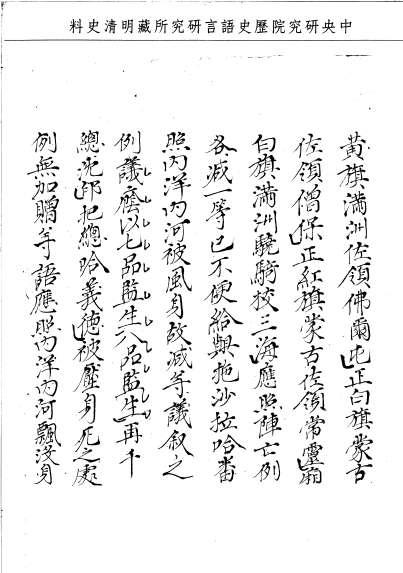 中央研究院歷史語言研究所藏明清史料
黃旗滿洲佐領佛爾屯正白旗蒙古
佐領僧保正紅旗蒙古佐領常靈廂
白旗滿洲驍騎校三海應照陣亡例
各減一等已不便給與拖沙拉哈番
照內洋內河被風身故減等議敘之
例議廕以七品監生八品監生再千
總沈邦把總哈義德被壓身死之處
例無加贈等語應照內洋內河飄沒身